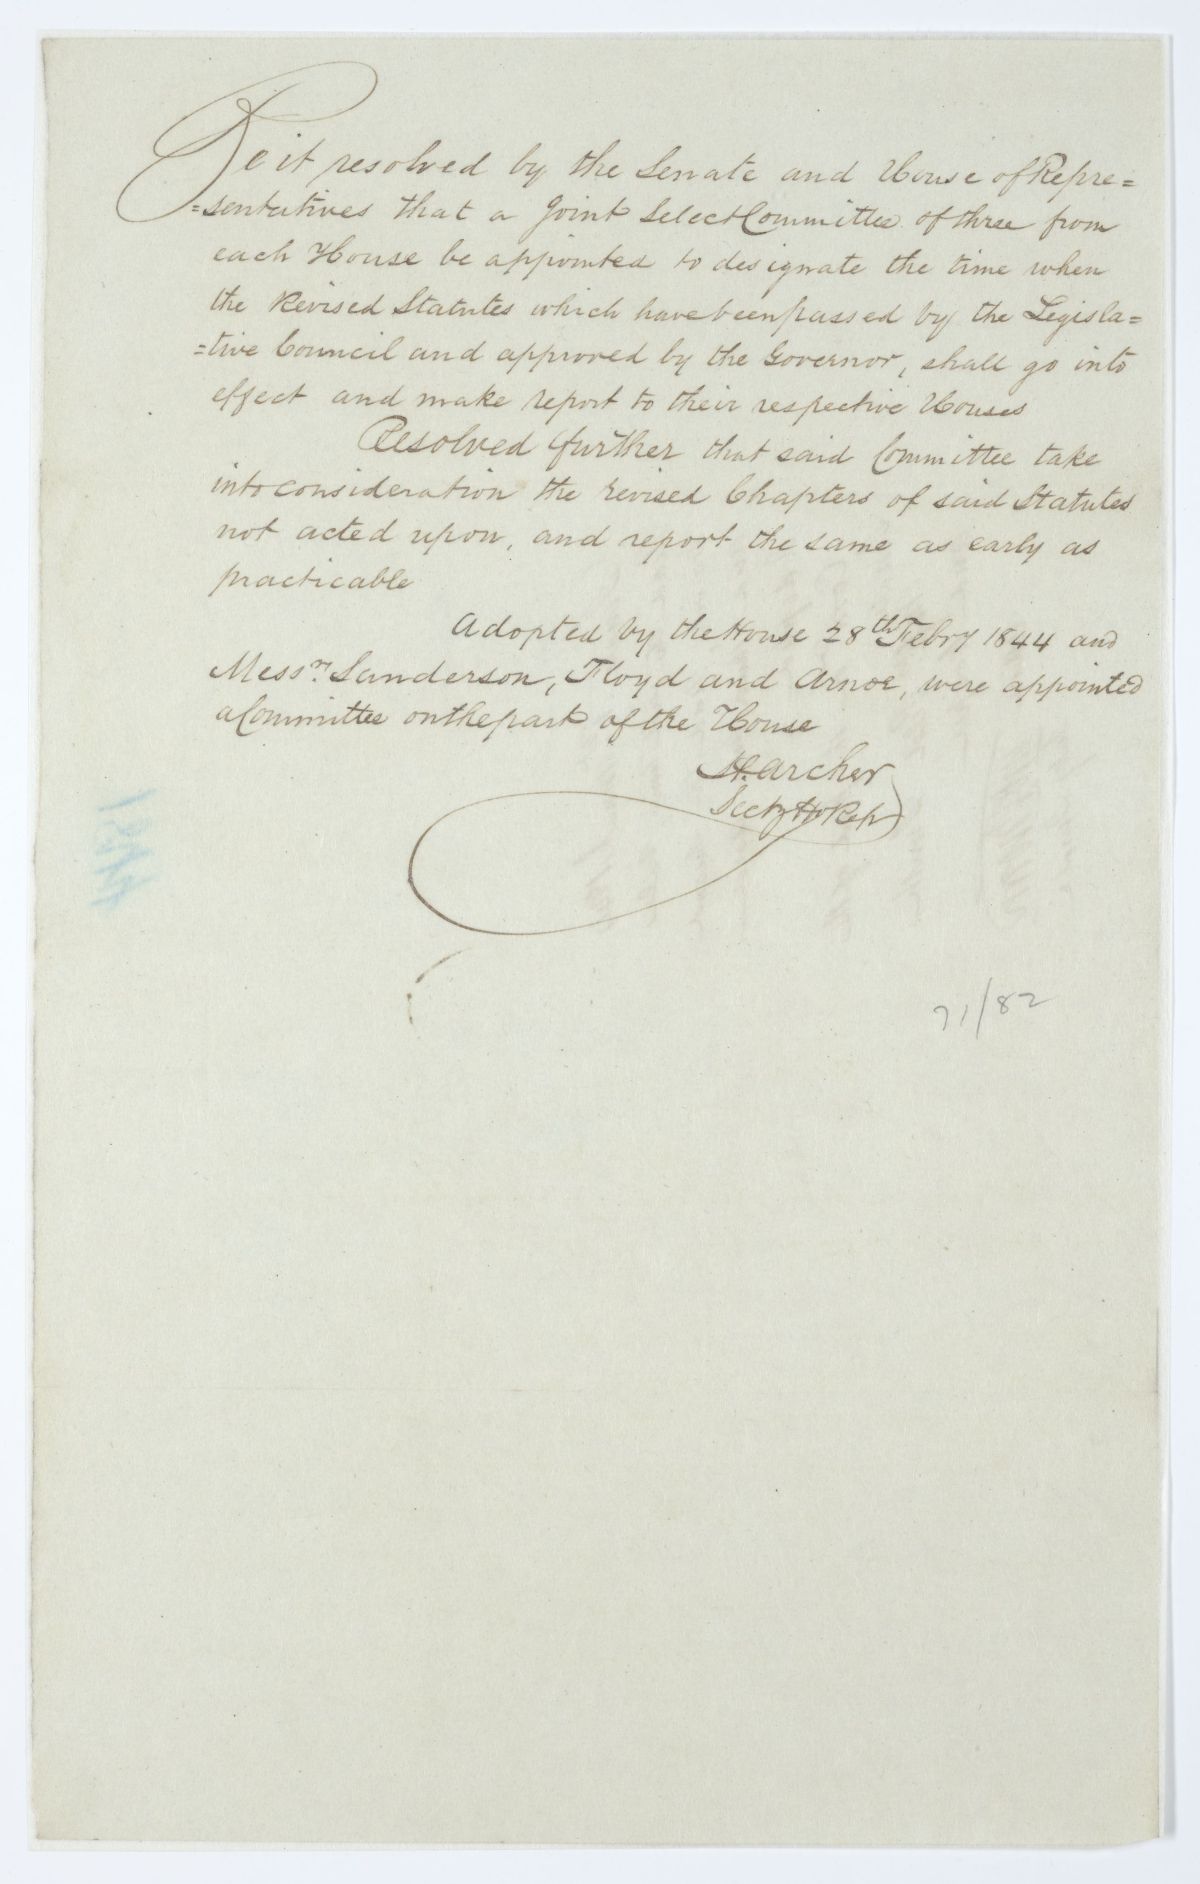 Be it resolved by the Senate and House of Repre=
=sentatives that a Joint Select Committee of three from
each House be appointed to designate the time when
the Revised Statutes which have been passed by the Legisla=
=tive Council and approved by the Governor, shall go into
effect and make report to their respective Houses
Resolved further that said Committee take
into consideration the revised Chapters of said Statutes
not acted upon, and report the same as early as
practicable
Adopted by the House 28th Febry 1844 and
Messrs. Sanderson, Floyd and Arnoe, were appointed
a Committee on the part of the House
H. Archer
Secty Ho Rep
71/82
1844